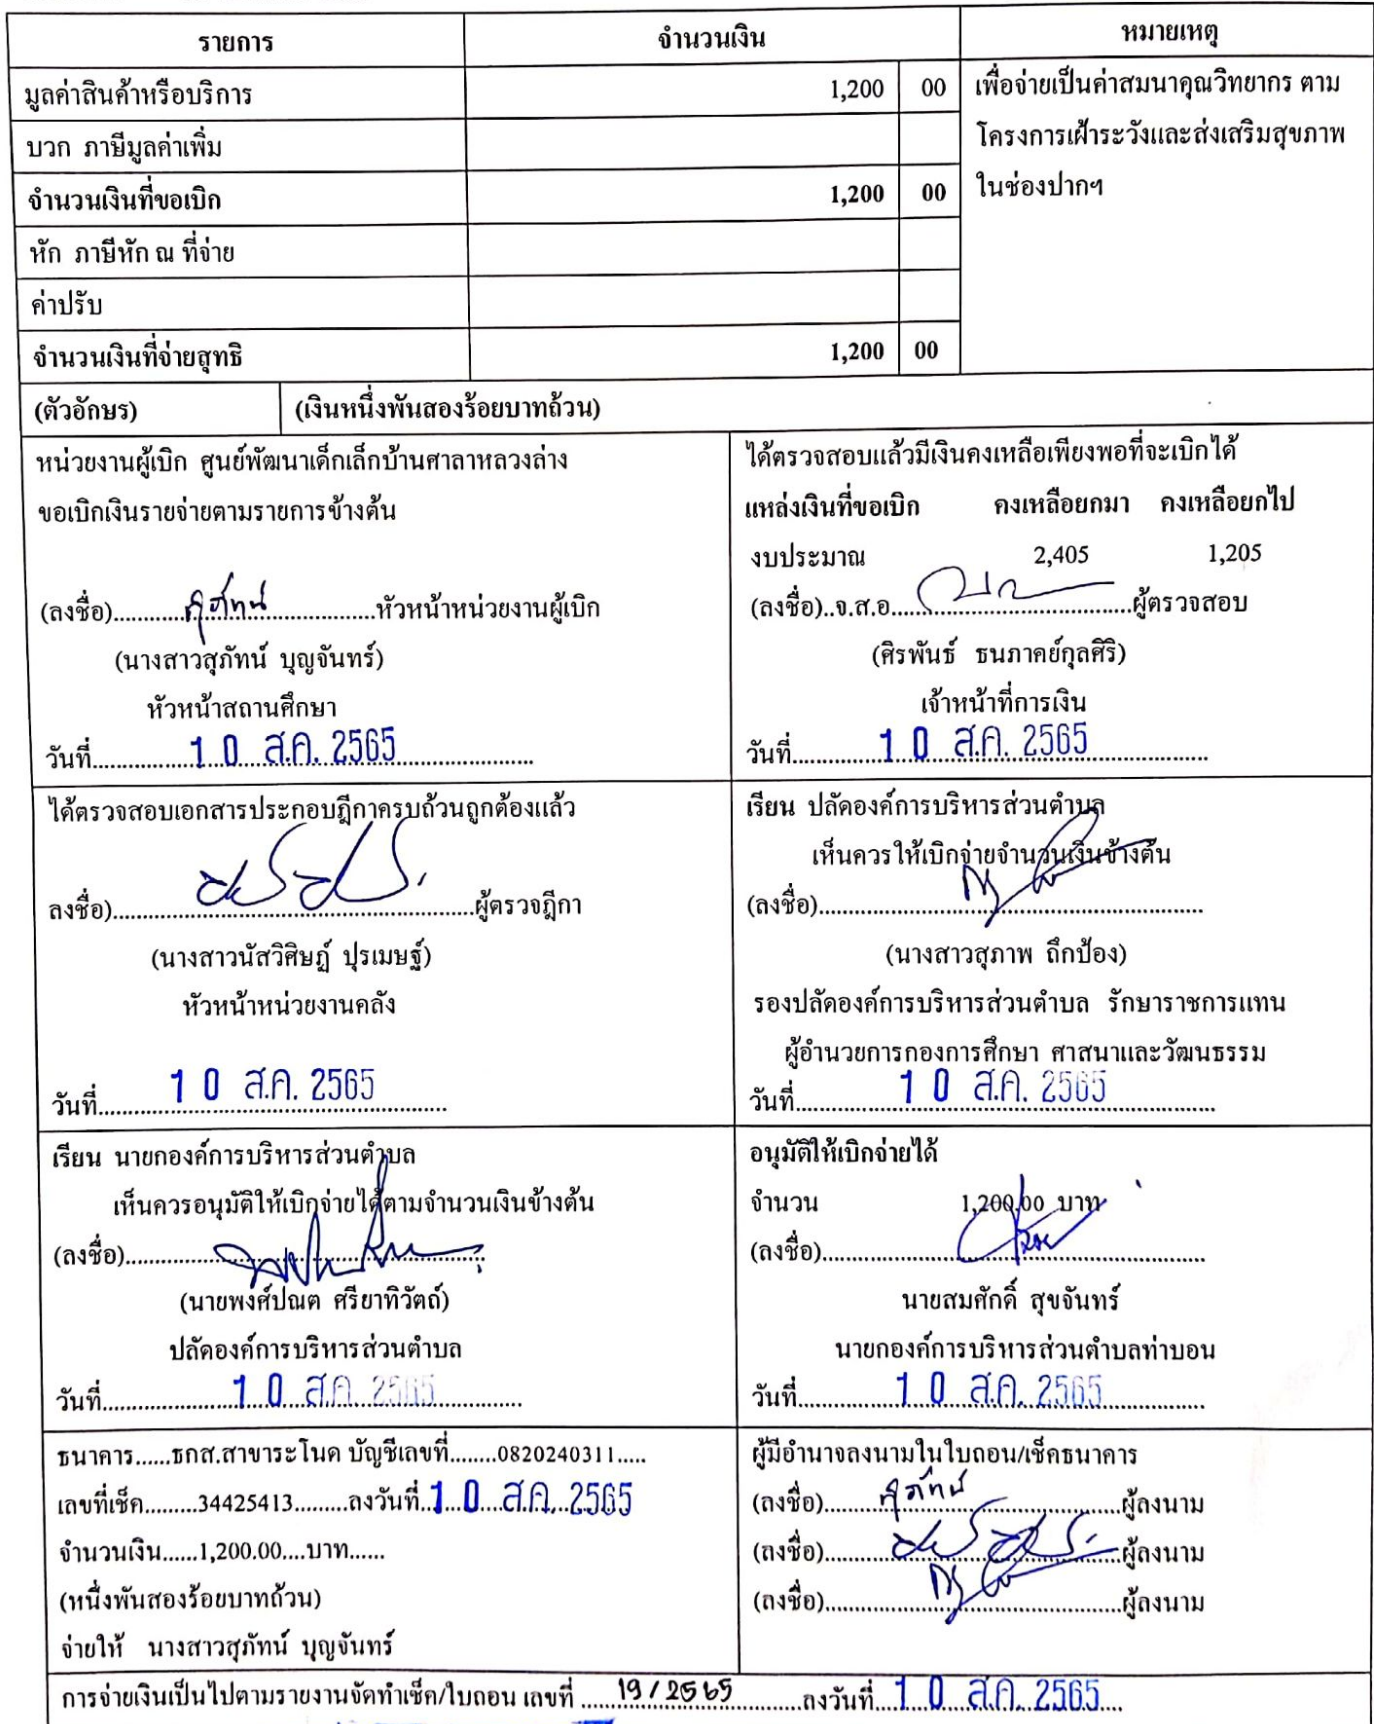 รายการ จำนวนเงิน หมายเหตุ
มูลค่าสินค้าหรือบริการ 1,200 00 เพื่อจ่ายเป็นค่าสมนาคุณวิทยากร ตาม
บวก ภาษีมูลค่าเพิ่ม โครงการเฝ้าระวังและส่งเสริมสุขภาพ
จำนวนเงินที่ขอเบิก 1,200 00 ในช่องปากฯ
หัก ภาษีหัก ณ ที่จ่าย
ค่าปรับ
จำนวนเงินที่จ่ายสุทธิ 1,200 00
(ตัวอักษร) (เงินหนึ่งพันสองร้อยบาทถ้วน)
หน่วยงานผู้เบิก ศูนย์พัฒนาเด็กเล็กบ้านศาลาหลวงล่าง
ขอเบิกเงินรายจ่ายตามรายการข้างต้น
(ลงชื่อ)..........สุภัทน์..........หัวหน้าหน่วยงานผู้เบิก
(นางสาวสุภัทน์ บุญจันทร์)
หัวหน้าสถานศึกษา
วันที่..........10 ส.ค. 2565..........
ได้ตรวจสอบแล้วมีเงินคงเหลือเพียงพอที่จะเบิกได้
แหล่งเงินที่ขอเบิก คงเหลือยกมา คงเหลือยกไป
งบประมาณ 2,405 1,205
(ลงชื่อ)..จ.ส.อ....................ผู้ตรวจสอบ
(ศิรพันธ์ ธนภาคย์กุลศิริ)
เจ้าหน้าที่การเงิน
วันที่..........10 ส.ค. 2565..........
ได้ตรวจสอบเอกสารประกอบฎีกาครบถ้วนถูกต้องแล้ว
ลงชื่อ)....................ผู้ตรวจฎีกา
(นางสาวนัสวิศิษฏ์ ปุรเมษฐ์)
หัวหน้าหน่วยงานคลัง
วันที่..........10 ส.ค. 2565..........
เรียน ปลัดองค์การบริหารส่วนตำบล
เห็นควรให้เบิกจ่ายจำนวนเงินข้างต้น
(ลงชื่อ)....................
(นางสาวสุภาพ ถึกป้อง)
รองปลัดองค์การบริหารส่วนตำบล รักษาราชการแทน
ผู้อำนวยการกองการศึกษา ศาสนาและวัฒนธรรม
วันที่..........10 ส.ค. 2565..........
เรียน นายกองค์การบริหารส่วนตำบล
เห็นควรอนุมัติให้เบิกจ่ายได้ตามจำนวนเงินข้างต้น
(ลงชื่อ)....................
(นายพงศ์ปณต ศรียาทิวัตถ์)
ปลัดองค์การบริหารส่วนตำบล
วันที่..........10 ส.ค. 2565..........
อนุมัติให้เบิกจ่ายได้
จำนวน 1,200.00 บาท
(ลงชื่อ)....................
นายสมศักดิ์ สุขจันทร์
นายกองค์การบริหารส่วนตำบลท่าบอน
วันที่..........10 ส.ค. 2565..........
ธนาคาร......ธกส.สาขาระโนด บัญชีเลขที่........0820240311.....
เลขที่เช็ค.........34425413.........ลงวันที่..10 ส.ค. 2565
จำนวนเงิน......1,200.00....บาท......
(หนึ่งพันสองร้อยบาทถ้วน)
จ่ายให้ นางสาวสุภัทน์ บุญจันทร์
ผู้มีอำนาจลงนามในใบถอน/เช็คธนาคาร
(ลงชื่อ)..........สุภัทน์..........ผู้ลงนาม
(ลงชื่อ)....................ผู้ลงนาม
(ลงชื่อ)....................ผู้ลงนาม
การจ่ายเงินเป็นไปตามรายงานจัดทำเช็ค/ใบถอน เลขที่ ......19/2565..........ลงวันที่..10 ส.ค. 2565....